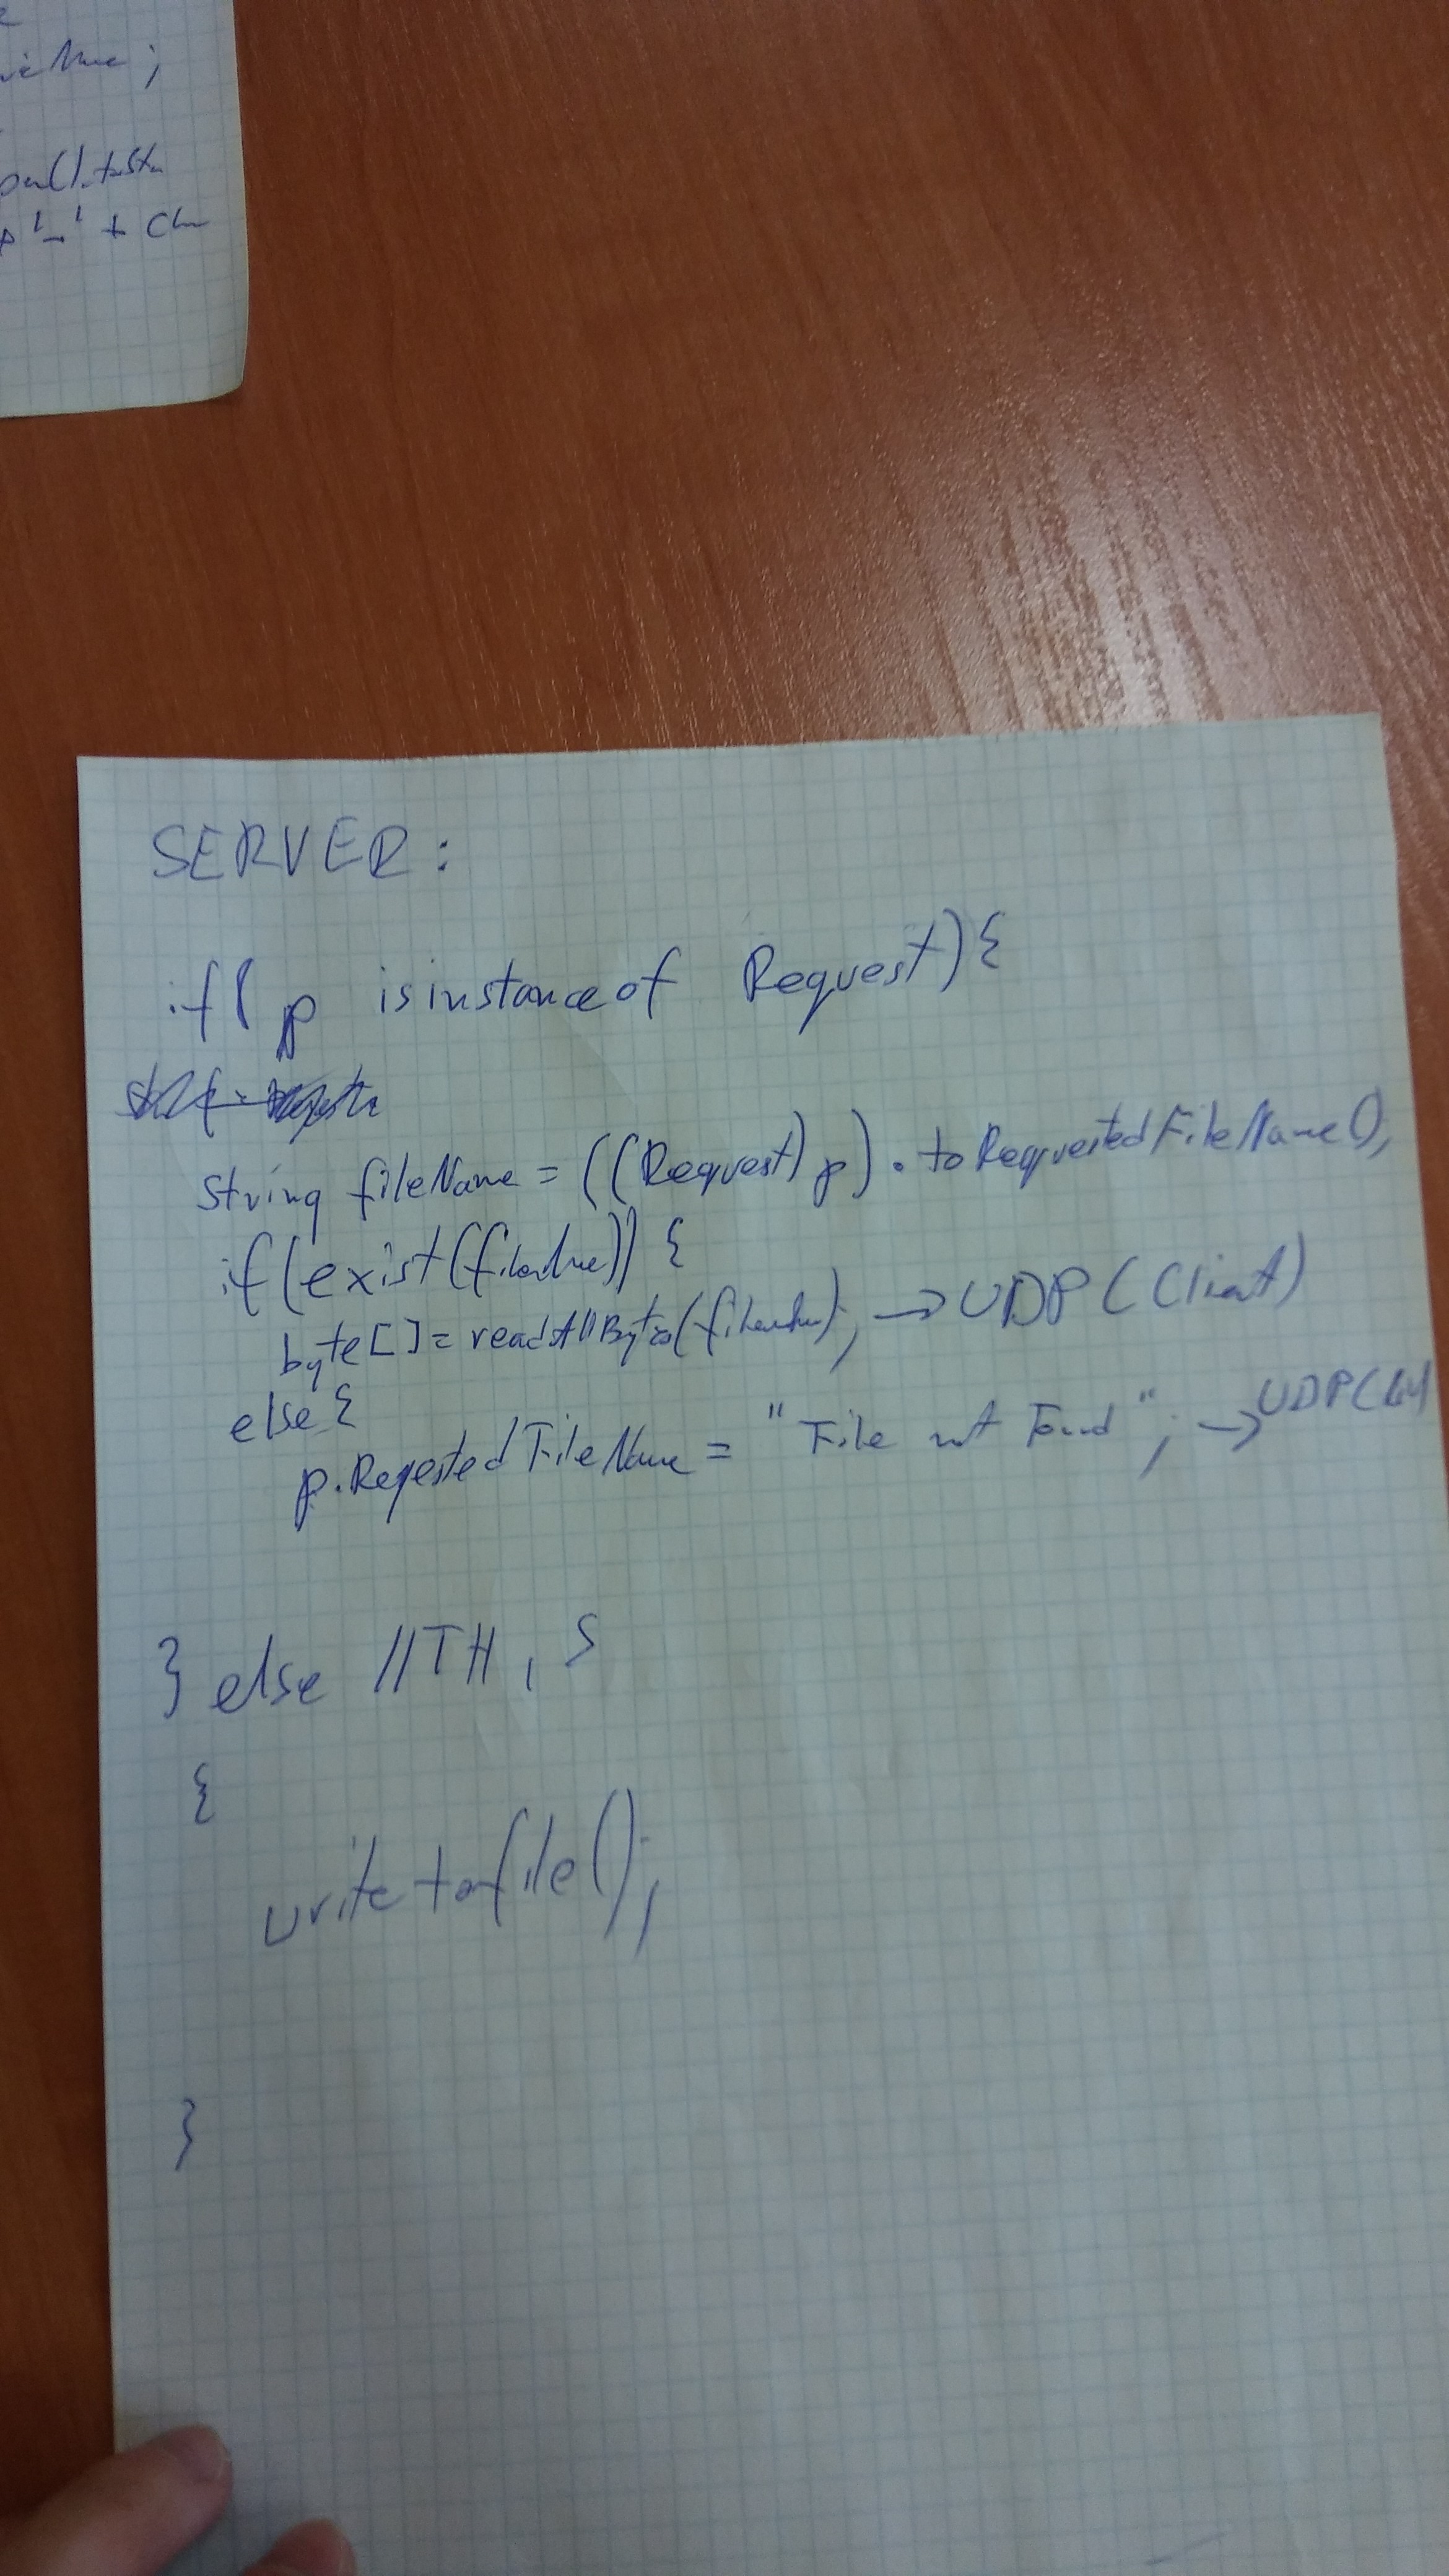 ; 
+ 
SERVER:
if( p isinstanceof Request){
String fileName = ((Request) p).toRequestedFileName();
if(exist(fileName)) {
byte[] = readAllBytes(fileName); → UDP(Client)
else {
p.ReqestedFileName = "File not Found"; → UDP(
} else //TH, S
{
writetofile();
}